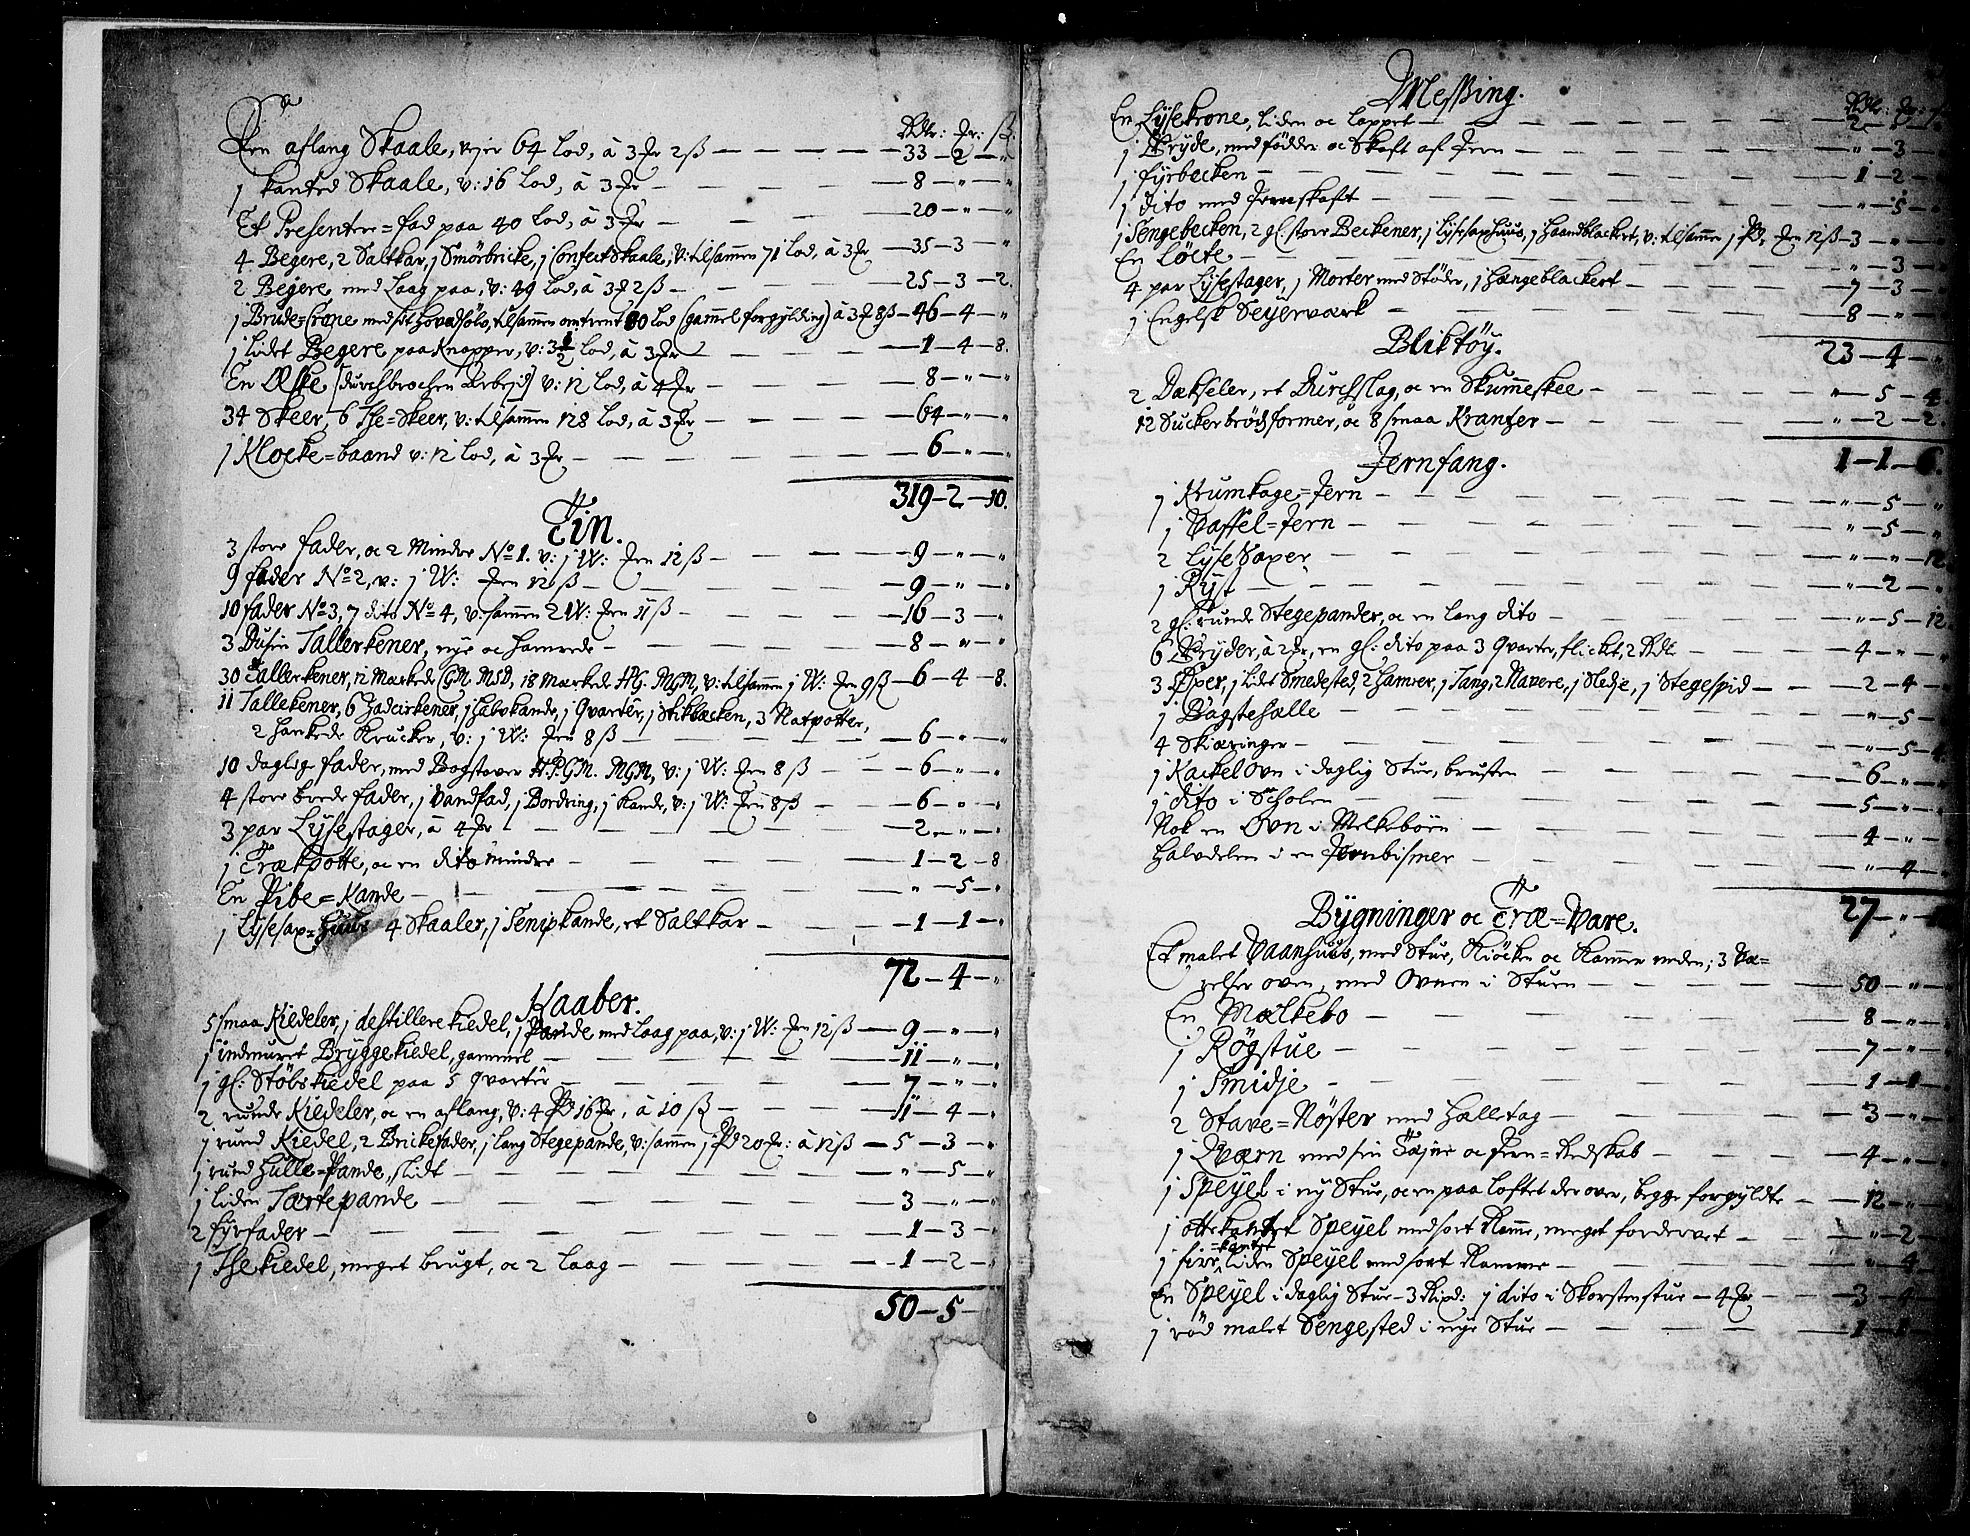 Rdlr: Or: ß:
Een aflang Skaale, vejer 64 Lod, à 3 Or 2 ß — 33 — 2 — "
1 kanted Skaale, v: 16 Lod, à 3 Or — 8 — " — "
Et Presenteer=fad paa 40 Lod, à 3 Or — 20 — " — "
4 Begere, 2 Saltkar, 1 Smörbricke, 1 Confect Skaale, v: tilsammen 71 Lod, à 3 Or — 35 — 3 — "
2 Begere, med Laag paa, v: 49 Lod, à 3 Or 2 ß — 25 — 3 — 2.
1 Brude=Crone med sit Hovedsölv, tilsammen omtrent 80 Lod (gammel forgylding) à 3 Or 8 ß — 46 — 4 — "
1 lidet Begere paa Knapper, v: 3 1/2 Lod, à 3 Or — 1 — 4 — 8.
En Æske [durchbrochen Arbejd] v: 12 Lod, à 4 Or — 8 — " — "
34 Skeer, 6 The=Skeer, v: tilsammen 128 Lod, à 3 Or — 64 — " — "
1 Klocke=baand v: 12 Lod, à 3 Or — 6 — " — "
319 — 2 — 10.
Tin.
3 store fader, oc 2 Mindre No 1. v: 1 W: Een 12 ß — 9 — " — "
9 fader No 2, v: 1 W: Een 12 ß — 9 — " — "
10 fader No 3, 7 dito No 4, v: sammen 2 W: Een 11 ß — 16 — 3 — "
3 Dusin Tallerkener, nye oc hamrede — 8 — " — "
30 Tallerkener, 12 Markede GM. MSD, 18 Markede HG. MGM, v: tilsammen 1 W: Een 9 ß — 6 — 4 — 8.
11 Tallekener, 6 , 1 Halvkande, 1 Qvarter, 1 Stikbecken, 3 Natpotter,
2 hankede Krucker, v: 1 W: Een 8 ß — 6 — " — "
10 daglige fader, med Bogstaver H.P.GM. MGM, v: 1 W: Een 8 ß — 6 — " — "
4 store brede fader, 1 Vandfad, 1 Bordring, 1 Kande, v: 1 W: Een 8 ß — 6 — " — "
3 par Lysestager, à 4 Or — 2 — " — "
1 Trækpotte, oc en dito mindre — 1 — 2 — 8
En Pibe=Kande — " — 5 — "
1 Lysesax=Huus 4 Skaaler, 1 Senipkande, et Saltkar — 1 — 1 — "
72 — 4 — "
Kaaber.
5 smaa Kiedeler, 1 destillere kiedel, 1 Pande med Laag paa, v: 1 W: Een 12 ß — 9 — " — "
1 indmuret Bryggekiedel, gammel — 11 — " — "
1 gl: Støbskiedel paa 5 qvarter — 7 — " — "
2 runde Kiedeler, oc en aflang, v: 4 16 , à 10 ß — 11 — 4 — "
1 rund Kiedel, 2 Brickefader, 1 lang Stegepande, v: sammen 1 20 : à 12 ß — 5 — 3 — "
1 rund Hulle=Pande, slidt — " — 5 — "
1 liden Tærtepande — 3 — " — "
2 fyrfader — 1 — 3 — "
1 Thekiedel, meget brugt, oc 2 Laag — 1 — 2 — "
50 — 5 —
Messing.
Rdlr: Or: ß
En Lysekrone, liden oc lappet — 2 — " — "
1 Gryde, med fødder oc Skaft af Jern — " — 3 — "
1 fyrbecken — 1 — 2 —
1 dito med Jernskaft — " — 5 —
1 Sengebecken, 2 gl: store Beckener, 1 Lysesaxhuus, 1 Haandblackert, v: tilsammen 1 , Een 12 ß — 3 — " — "
En Löcte — " — 3 — "
4 par Lysestager, 1 Morter med Stöder, 1 hængeblackert — 7 — 3 — "
1 Engelsk Seyerværk — 8 — " — "
23 — 4 — "
Bliktöy.
2 Dækseler, et Durchslag, oc en Skummeskee — " — 5 — 4
12 Suckerbrödsformer, oc 8 smaa Krantzer — " — 2 — 2.
1 — 1 — 6.
Jernfang.
1 Krumkage=Jern — " — 5 — "
1 Vaffel=Jern — " — 5 — "
2 Lyse Saxer — " — " — 12.
1 Ryst — " — 2 — "
2 gl: runde Stegepander, oc en lang dito — " — 5 — 12.
6 Gryder, à 2 Or, en gl: dito paa 3 Quarter, flickt, 2 Rdl — 4 — " — "
3 Øxer, 1 lidet Smedested, 2 hamrer, 1 Tang, 2 Navere, 1 Sledje, 1 Stegespid — 2 — 4 — "
1 Bagstehælle — " — 5 —
4 Skiæringer — " — 5 — 4
1 Kackelovn i daglig Stue, brusten — 6 — " — "
1 dito i Scholen — 5 — " — "
Nok en Ovn i Melkeboen — 4 — " — "
Halvdelen i en Jernbismer — " — 4 — "
27 — " —
Bygninger oc Træ=Vare.
Et malet Vaanhuus, med Stue, Kiöcken oc Kammer neden; 3 Væ=
relser oven, med Ovnen i Stuen — 50 — " — "
En Mælkebo — 8 — " — "
1 Røgstue — 7 — " — "
1 Smidje — 1 — 1 —
2 Stave=Nøster med Halltag — 3 — " —
1 Qværn med sin Tøjer oc Jern=Redskab — 4 — " — "
1 Speyel i ny Stue, oc en paa Loftet der over, begge forgyldte — 12 — " —
1 ottekantet Speyel med sort Ramme, meget fordervet — " — 2 —
1 fiire=kantet liden Speyel med sort Ramme — " — 4 —
En Speyel i daglig Stue — 3 Rixd: 1 dito i Skorstenstue — 4 Or — 3 — 4 —
1 rød malet Sengested i nye Stue — 1 — 1 —